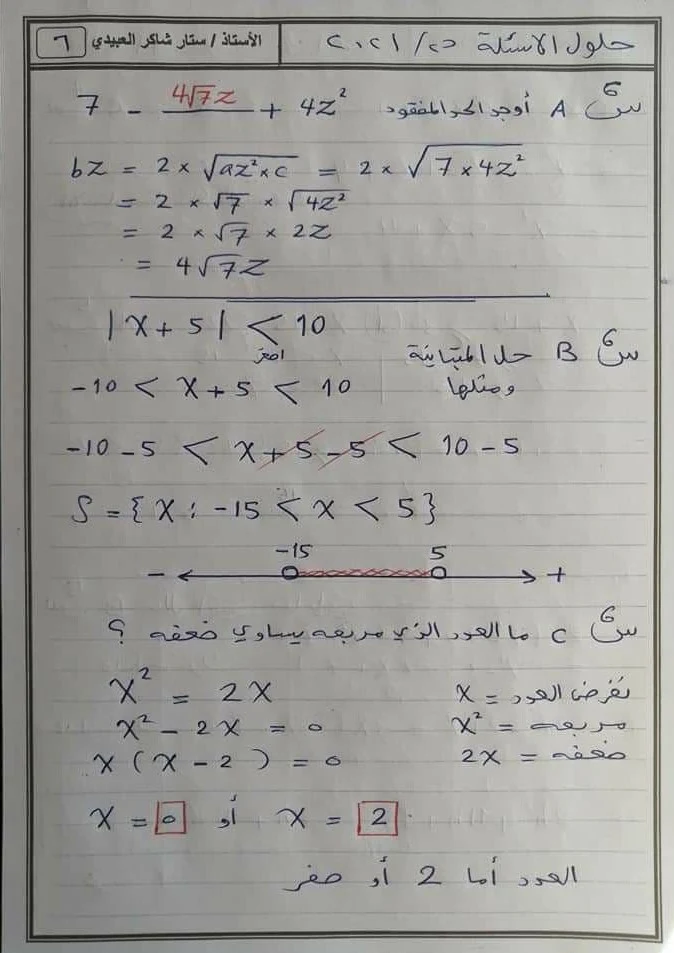 حلول الأسئلة د٢/ ٢٠٢١ الأستاذ / ستار شاكر العبيدي ٦
س6 A أوجد الحد المفقود 7 - 4√7z + 4z²
bz = 2 × √az²×c = 2 × √7 × 4z²
= 2 × √7 × √4z²
= 2 × √7 × 2z
= 4√7z
|x + 5| < 10
اصغر
س6 B حل المتباينة
ومثلها
-10 < x + 5 < 10
-10 - 5 < x + 5 - 5 < 10 - 5
S = {x : -15 < x < 5}
-15 5
- +
س6 C ما العدد الذي مربعه يساوي ضعفه ؟
نفرض العدد = x
x² = 2x
مربعه = x²
x² - 2x = 0
ضعفه = 2x
x (x - 2) = 0
x = 0 أو x = 2
العدد أما 2 أو صفر